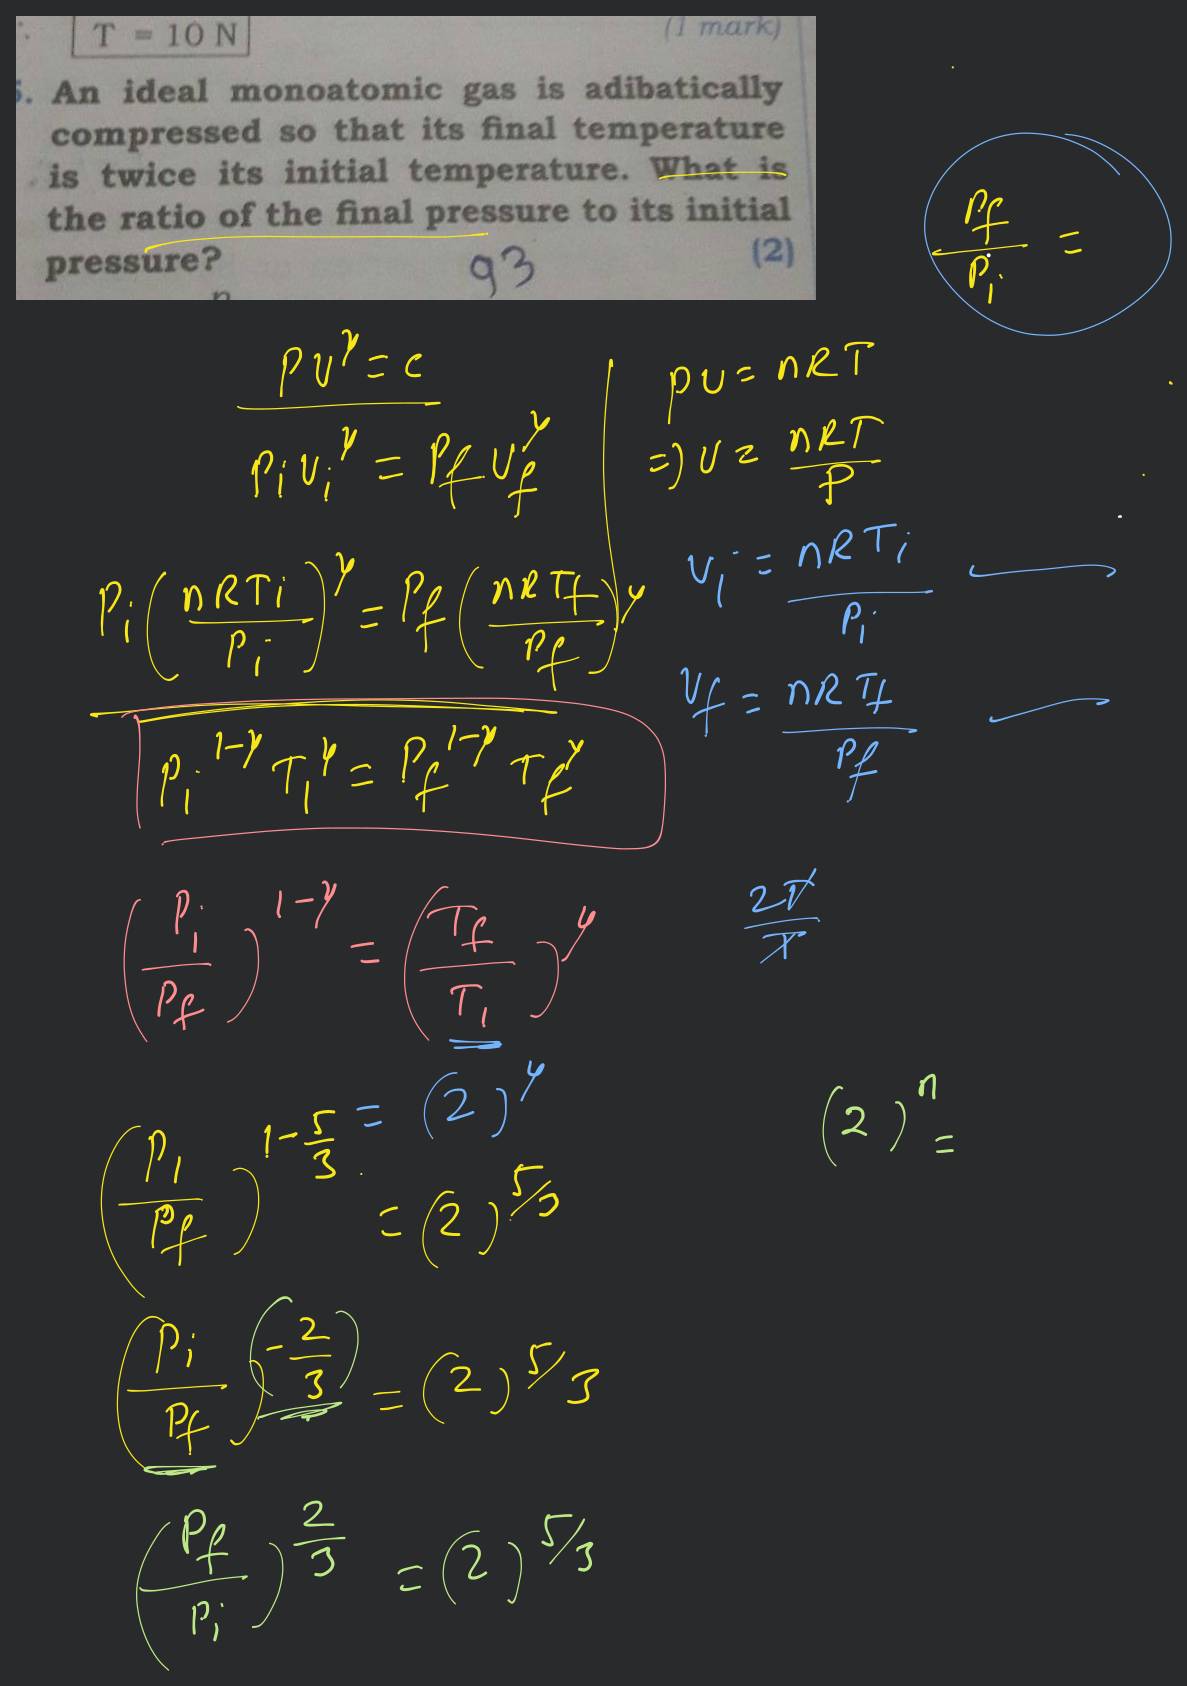 T = 10 N
(1 mark)
5. An ideal monoatomic gas is adibatically
compressed so that its final temperature
is twice its initial temperature. What is
the ratio of the final pressure to its initial
pressure?
(2)
93
Pf/Pi =
PV^γ = c
Pi Vi^γ = Pf Vf^γ
Pi (nRTi/Pi)^γ = Pf (nRTf/Pf)^γ
Pi^1-γ Ti^γ = Pf^1-γ Tf^γ
PV = nRT
=) V = nRT/P
Vi = nRTi/Pi
Vf = nRTf/Pf
(Pi/Pf)^1-γ = (Tf/Ti)^γ
2T/T
= (2)^γ
(Pi/Pf)^1-5/3 = (2)^5/3
(2)^n =
(Pi/Pf)^(-2/3) = (2)^5/3
(Pf/Pi)^2/3 = (2)^5/3